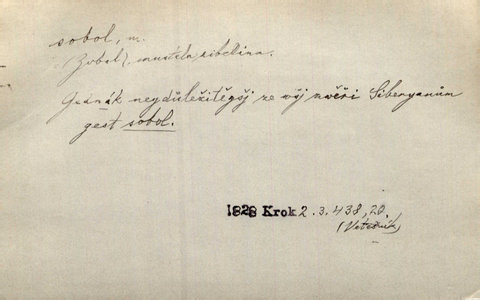 sobol, m.
(Zobel), mustela zibelina.
Ginák neydůležitěgšj ze wšj zwěři Siberyanům
gest sobol.
1828 Krok 2.3.438,20.
(Wetešník)